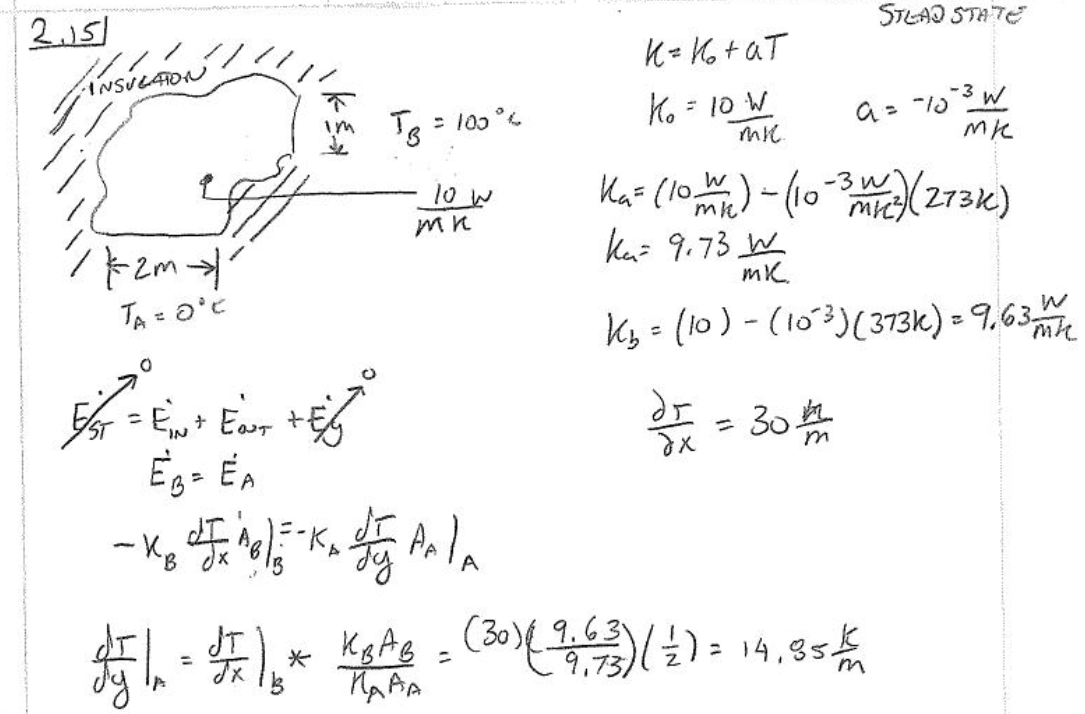 2.15
STEADSTATE
INSULATION
1m
T_B = 100°C
10 W
mK
2m
T_A = 0°C
K = K₀ + aT
K₀ = 10 W/mK a = -10⁻³ W/mK
K_a = (10 W/mK) - (10⁻³ W/mK²)(273K)
k_a = 9.73 W/mK
K_b = (10) - (10⁻³)(373K) = 9.63 W/mK
∂T/∂x = 30 K/m
Ė_ST 0 = Ė_IN + Ė_OUT + Ė_g 0
Ė_B = Ė_A
-K_B dT/dx A_B|_B = -K_A dT/dy A_A|_A
dT/dy|_A = dT/dx|_B * K_B A_B/K_A A_A = (30)(9.63/9.73)(1/2) = 14.85 K/m